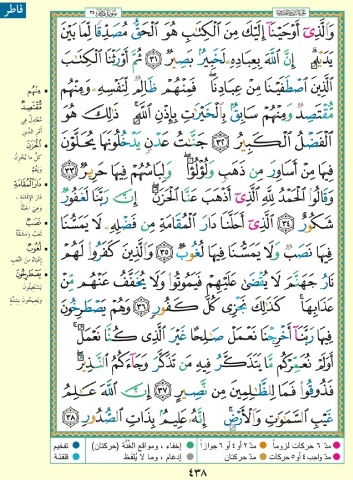 فاطر
وَالَّذِي أَوْحَيْنَا إِلَيْكَ مِنَ الْكِتَابِ هُوَ الْحَقُّ مُصَدِّقًا لِمَا بَيْنَ
يَدَيْهِ إِنَّ اللَّهَ بِعِبَادِهِ لَخَبِيرٌ بَصِيرٌ ٣١ ثُمَّ أَوْرَثْنَا الْكِتَابَ
الَّذِينَ اصْطَفَيْنَا مِنْ عِبَادِنَا فَمِنْهُمْ ظَالِمٌ لِنَفْسِهِ وَمِنْهُمْ
مُقْتَصِدٌ وَمِنْهُمْ سَابِقٌ بِالْخَيْرَاتِ بِإِذْنِ اللَّهِ ذَٰلِكَ هُوَ
الْفَضْلُ الْكَبِيرُ ٣٢ جَنَّاتُ عَدْنٍ يَدْخُلُونَهَا يُحَلَّوْنَ
فِيهَا مِنْ أَسَاوِرَ مِنْ ذَهَبٍ وَلُؤْلُؤًا وَلِبَاسُهُمْ فِيهَا حَرِيرٌ ٣٣
وَقَالُوا الْحَمْدُ لِلَّهِ الَّذِي أَذْهَبَ عَنَّا الْحَزَنَ إِنَّ رَبَّنَا لَغَفُورٌ
شَكُورٌ ٣٤ الَّذِي أَحَلَّنَا دَارَ الْمُقَامَةِ مِنْ فَضْلِهِ لَا يَمَسُّنَا
فِيهَا نَصَبٌ وَلَا يَمَسُّنَا فِيهَا لُغُوبٌ ٣٥ وَالَّذِينَ كَفَرُوا لَهُمْ
نَارُ جَهَنَّمَ لَا يُقْضَىٰ عَلَيْهِمْ فَيَمُوتُوا وَلَا يُخَفَّفُ عَنْهُمْ مِنْ
عَذَابِهَا كَذَٰلِكَ نَجْزِي كُلَّ كَفُورٍ ٣٦ وَهُمْ يَصْطَرِخُونَ
فِيهَا رَبَّنَا أَخْرِجْنَا نَعْمَلْ صَالِحًا غَيْرَ الَّذِي كُنَّا نَعْمَلُ
أَوَلَمْ نُعَمِّرْكُمْ مَا يَتَذَكَّرُ فِيهِ مَنْ تَذَكَّرَ وَجَاءَكُمُ النَّذِيرُ
فَذُوقُوا فَمَا لِلظَّالِمِينَ مِنْ نَصِيرٍ ٣٧ إِنَّ اللَّهَ عَالِمُ
غَيْبِ السَّمَاوَاتِ وَالْأَرْضِ إِنَّهُ عَلِيمٌ بِذَاتِ الصُّدُورِ ٣٨
مُقْتَصِدٌ
الْحَزَنَ
دَارَ الْمُقَامَةِ
نَصَبٌ
لُغُوبٌ
يَصْطَرِخُونَ
مدّ ٦ حركات لزوماً
مدّ ٢ أو ٤ أو ٦ جوازاً
إخفاء، ومواقع الغُنَّة (حركتان)
تفخيم
مدّ واجب ٤ أو ٥ حركات
مدّ حركتان
إدغام، وما لا يُلفظ
قلقلة
٤٣٨